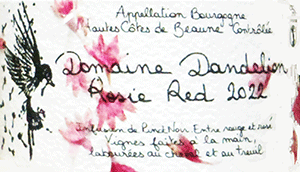 Appellation Bourgogne
Hautes Côtes de Beaune Contrôlée
Domaine Dandelion
Rosie Red 2022
Infusion de Pinot Noir. Entre rouge et rosé
Vignes faites à la main,
labourées au cheval et au treuil